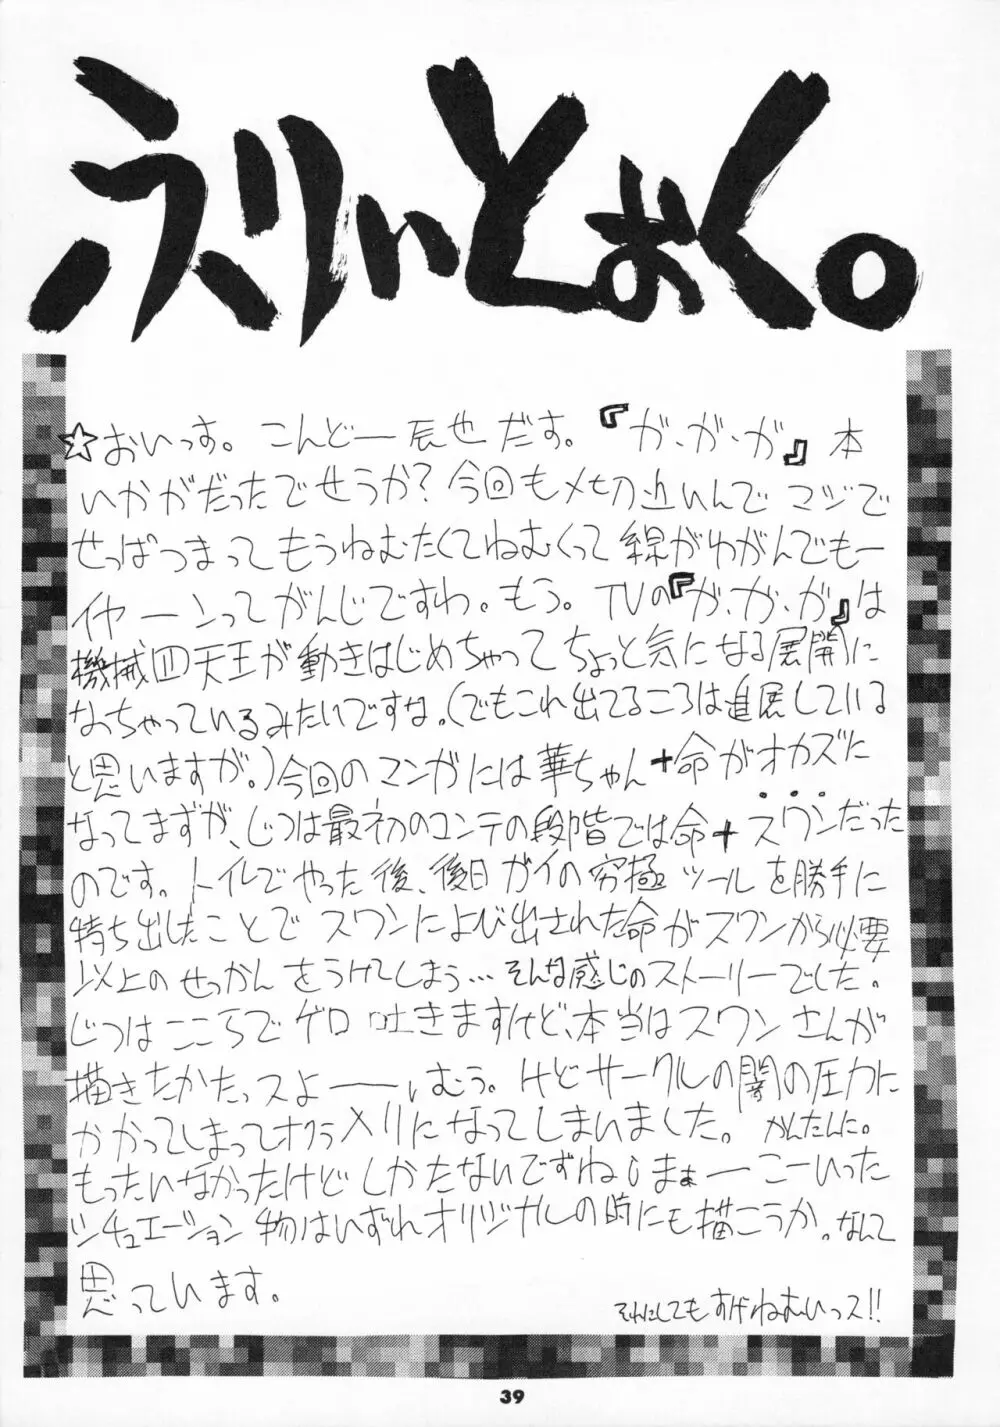 えりぃとぉく。
☆おいっす。こんどー辰也だす。『ガ・ガ・ガ』本
いかがだったでせうか?今回もメ切近いんでマジで
せっぱつまってもうねむたくてねむくって線がわがんでもー
イヤーンってがんじですわ。もう。TVの『ガ・ガ・ガ』は
機械四天王が動きはじめちゃってちょっと気になる展開に
なっちゃっているみたいですな。(でもこれ出てるころは進展している
と思いますが。)今回のマンガには華ちゃん+命がオカズに
なってますが、じつは最初のコンテの段階では命+スワンだった
のです。トイレでやった後、後日ガイの究極ツールを勝手に
持ち出したことでスワンによび出された命がスワンから必要
以上のせっかんをうけてしまう…そんな感じのストーリーでした。
じつはこころでゲロ吐きますけど、本当はスワンさんが
描きたかたっスよーーいむう。けどサークルの闇の圧力に
かかってしまってオクラ入りになってしまいました。かんたんに。
もったいなかったけどしかたないですねしまぁーこーいった
シチュエーション物はいずれオリジナルの時にも描こうか。なんて
思っています。
それにしてもすげねむいっス!!
39